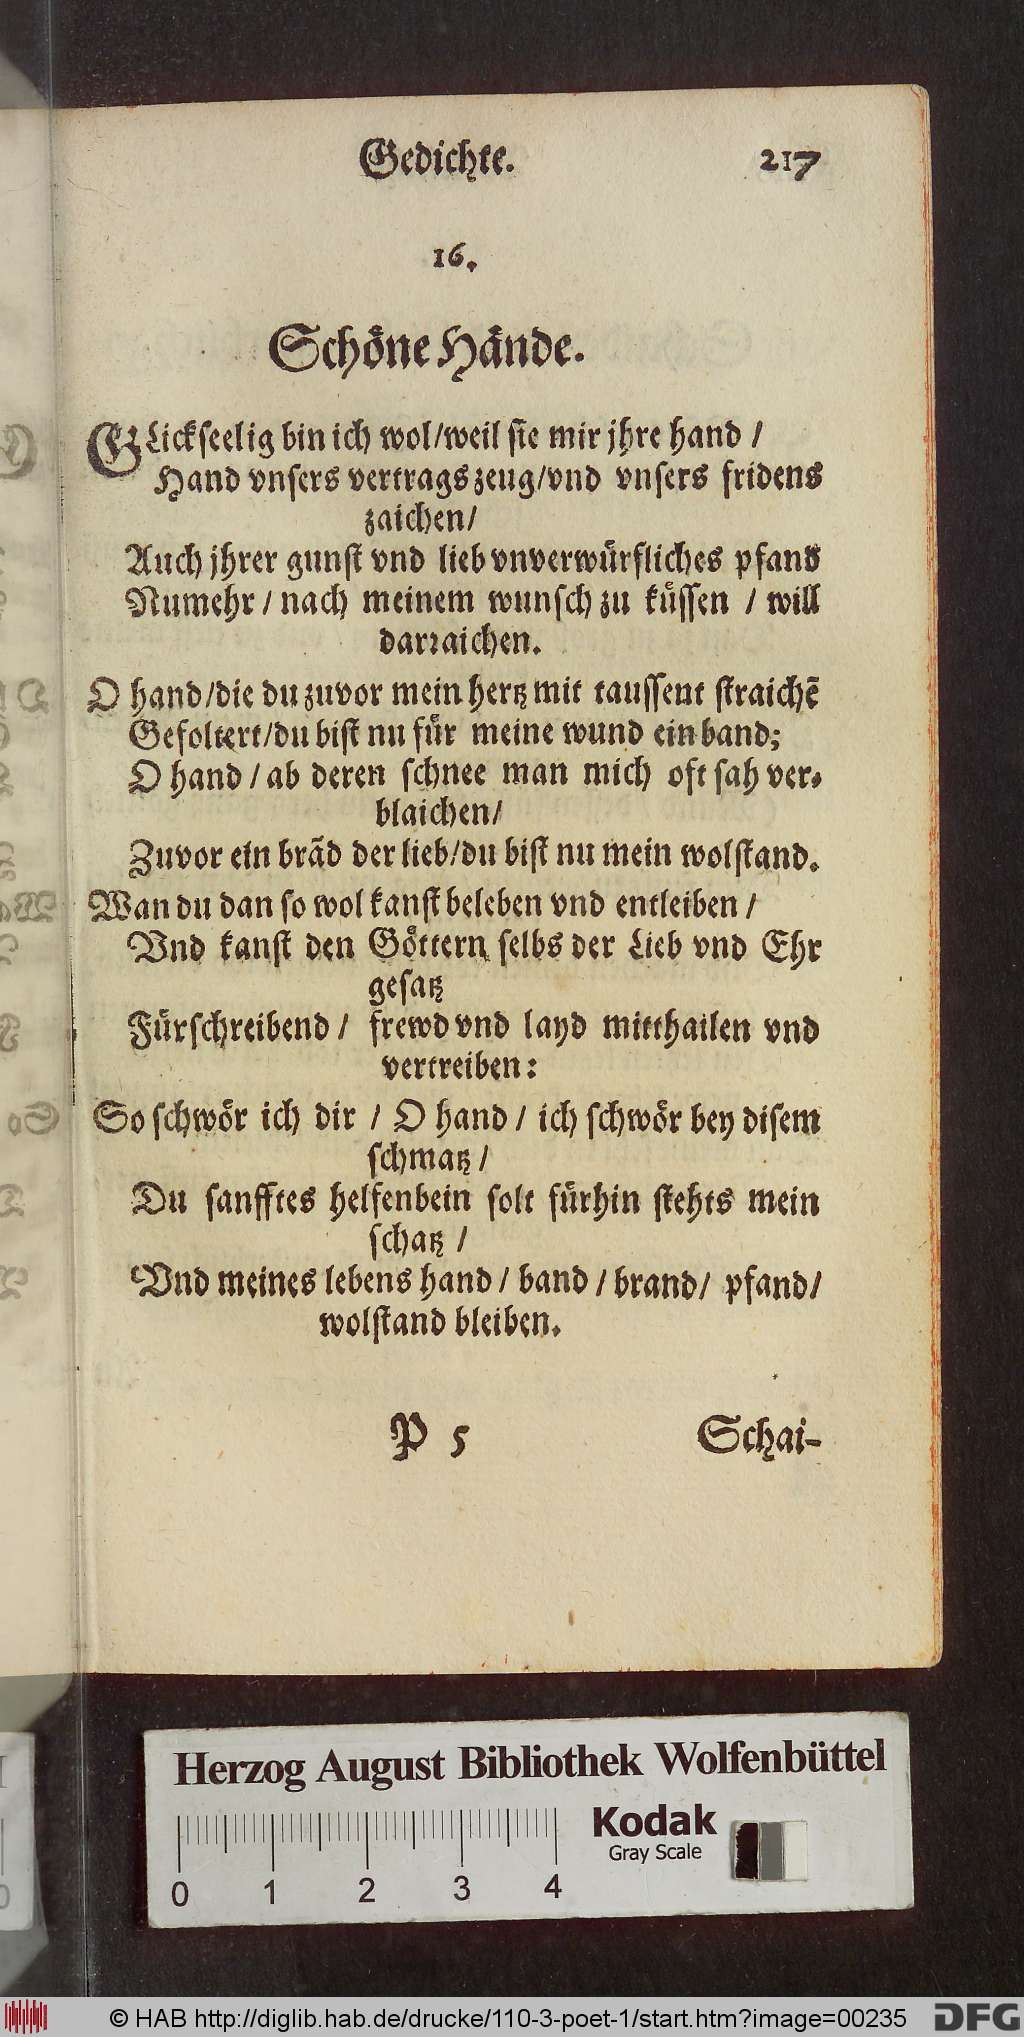 Gedichte. 217
16.
Schöne Hände.
GLickseelig bin ich wol/weil sie mir jhre hand /
Hand vnsers vertrags zeug/vnd vnsers fridens
zaichen/
Auch jhrer gunst vnd lieb vnverwürfliches pfand
Numehr / nach meinem wunsch zu küssen / will
darꝛaichen.
O hand/die du zuvor mein hertz mit taussent straichẽ
Gefoltert/du bist nu für meine wund ein band;
O hand / ab deren schnee man mich oft sah ver-
blaichen/
Zuvor ein brãd der lieb/du bist nu mein wolstand.
Wan du dan so wol kanst beleben vnd entleiben /
Vnd kanst den Göttern selbs der Lieb vnd Ehr
gesatz
Fürschreibend / frewd vnd layd mitthailen vnd
vertreiben:
So schwör ich dir / O hand / ich schwör bey disem
schmatz /
Du sanfftes helfenbein solt fürhin stehts mein
schatz /
Vnd meines lebens hand / band / brand/ pfand/
wolstand bleiben.
P 5 Schai-
Herzog August Bibliothek Wolfenbüttel
Kodak
Gray Scale
0 1 2 3 4
© HAB http://diglib.hab.de/drucke/110-3-poet-1/start.htm?image=00235 DFG